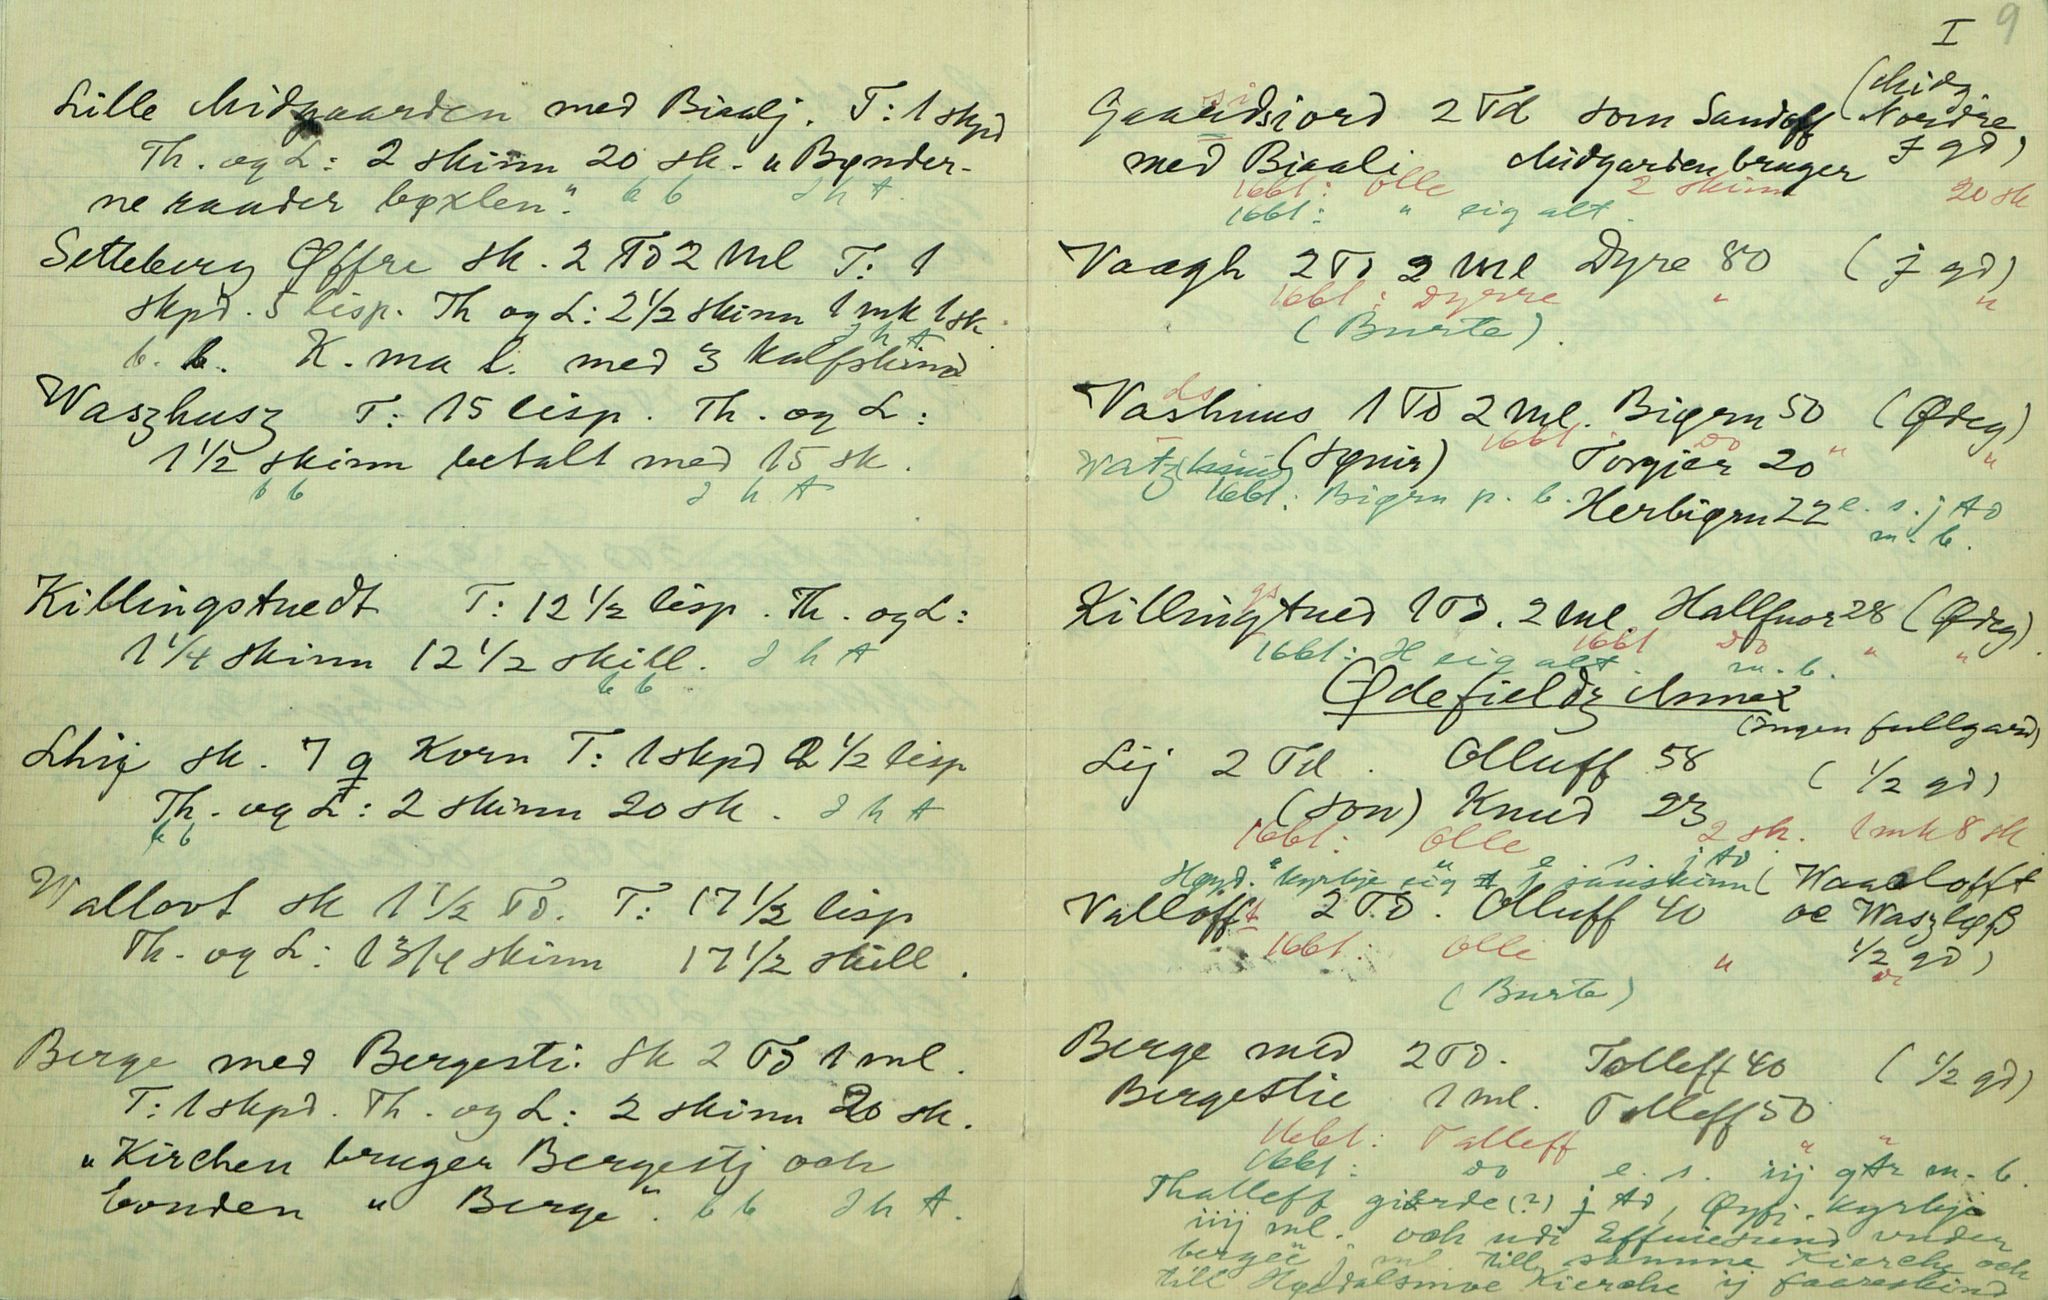 Lille Midgaarden med Biaalj. T: 1 skpd
Th. og L: 2 skinn 20 sk. "Bønder-
ne raader bøxlen". b b d h A.
Setteberg Øffre sk. 2 Td 2 ml T: 1
skpd. 5 lisp. Th og L: 2 1/2 skinn 1 mk 1 sk.
b. b. K. ma l. med 3 kalfskind d h A
Waszhusz T: 15 lisp. Th. og L:
1 1/2 skinn betalt med 15 sk.
b b d h A
Killingstuedt T: 12 1/2 lisp. Th. og L:
1 1/4 skinn 12 1/2 skill. d h A
b b
Lhię sk. 7 q Korn T: 1 skpd 2 1/2 lisp
Th. og L: 2 skinn 20 sk. d h A
b b
Wallovt sk 1 1/2 Td. T: 17 1/2 lisp
Th. og L: 1 3/4 skinn 17 1/2 skill.
Berge med Bergesti: sk 2 Td 1 ml.
T: 1 skpd. Th. og L: 2 skinn 20 sk.
"Kirchen bruger Bergestj och
bonden " Berge". b b d h A.
I 9
Gaardsiord 2 Td som Sandoff (Midg.
Nordre
med Biaali Midgarden bruger J gd)
1661: Olle 2 skinn 20 sk
1661: " eig alt.
Vaagh 2 Td 2 ml Dyre 80 (J gd)
1661: Dyrre " "
(Burte).
Vashuus 1 Td 2 ml. Biørn 50 (Ødeg)
Watzhuus (Sønir) 1661 Torgjer 20 " "
1661: Biørn p. b. Herbiørn 22 e. s. j Td
m. b.
Killingstued 1 Td. 2 ml. Hallfuor 28 (Ødeg).
1661 Do " "
1661: H eig alt m. b.
Ødefieldz Annex
(ingen fullgard)
Lij 2 Td. Olluff 58 (1/2 gd)
(søn) Knud 23
1661: Olle 2 sk. 1 mk 8 sk
e. s. j Td
Vallofft 2 Td. Olluff 40 (Waaelofft
oc Waszløß
1661: Olle " 1/2 gd)
(Burte)
Berge med 2 Td. Tolleff 40 (1/2 gd)
Bergestie 1 ml. Tolleff 50
1661: Talleff " "
1661: do e. s. iij gtr m. b.
Thalleff giørde(?) j Td, Øyfj. kyrkje
iiij ml. och udi Effuiesund vnder
bergee" j ml. till samme Kierche och
till Høydalsmoe Kierche ij faareskind